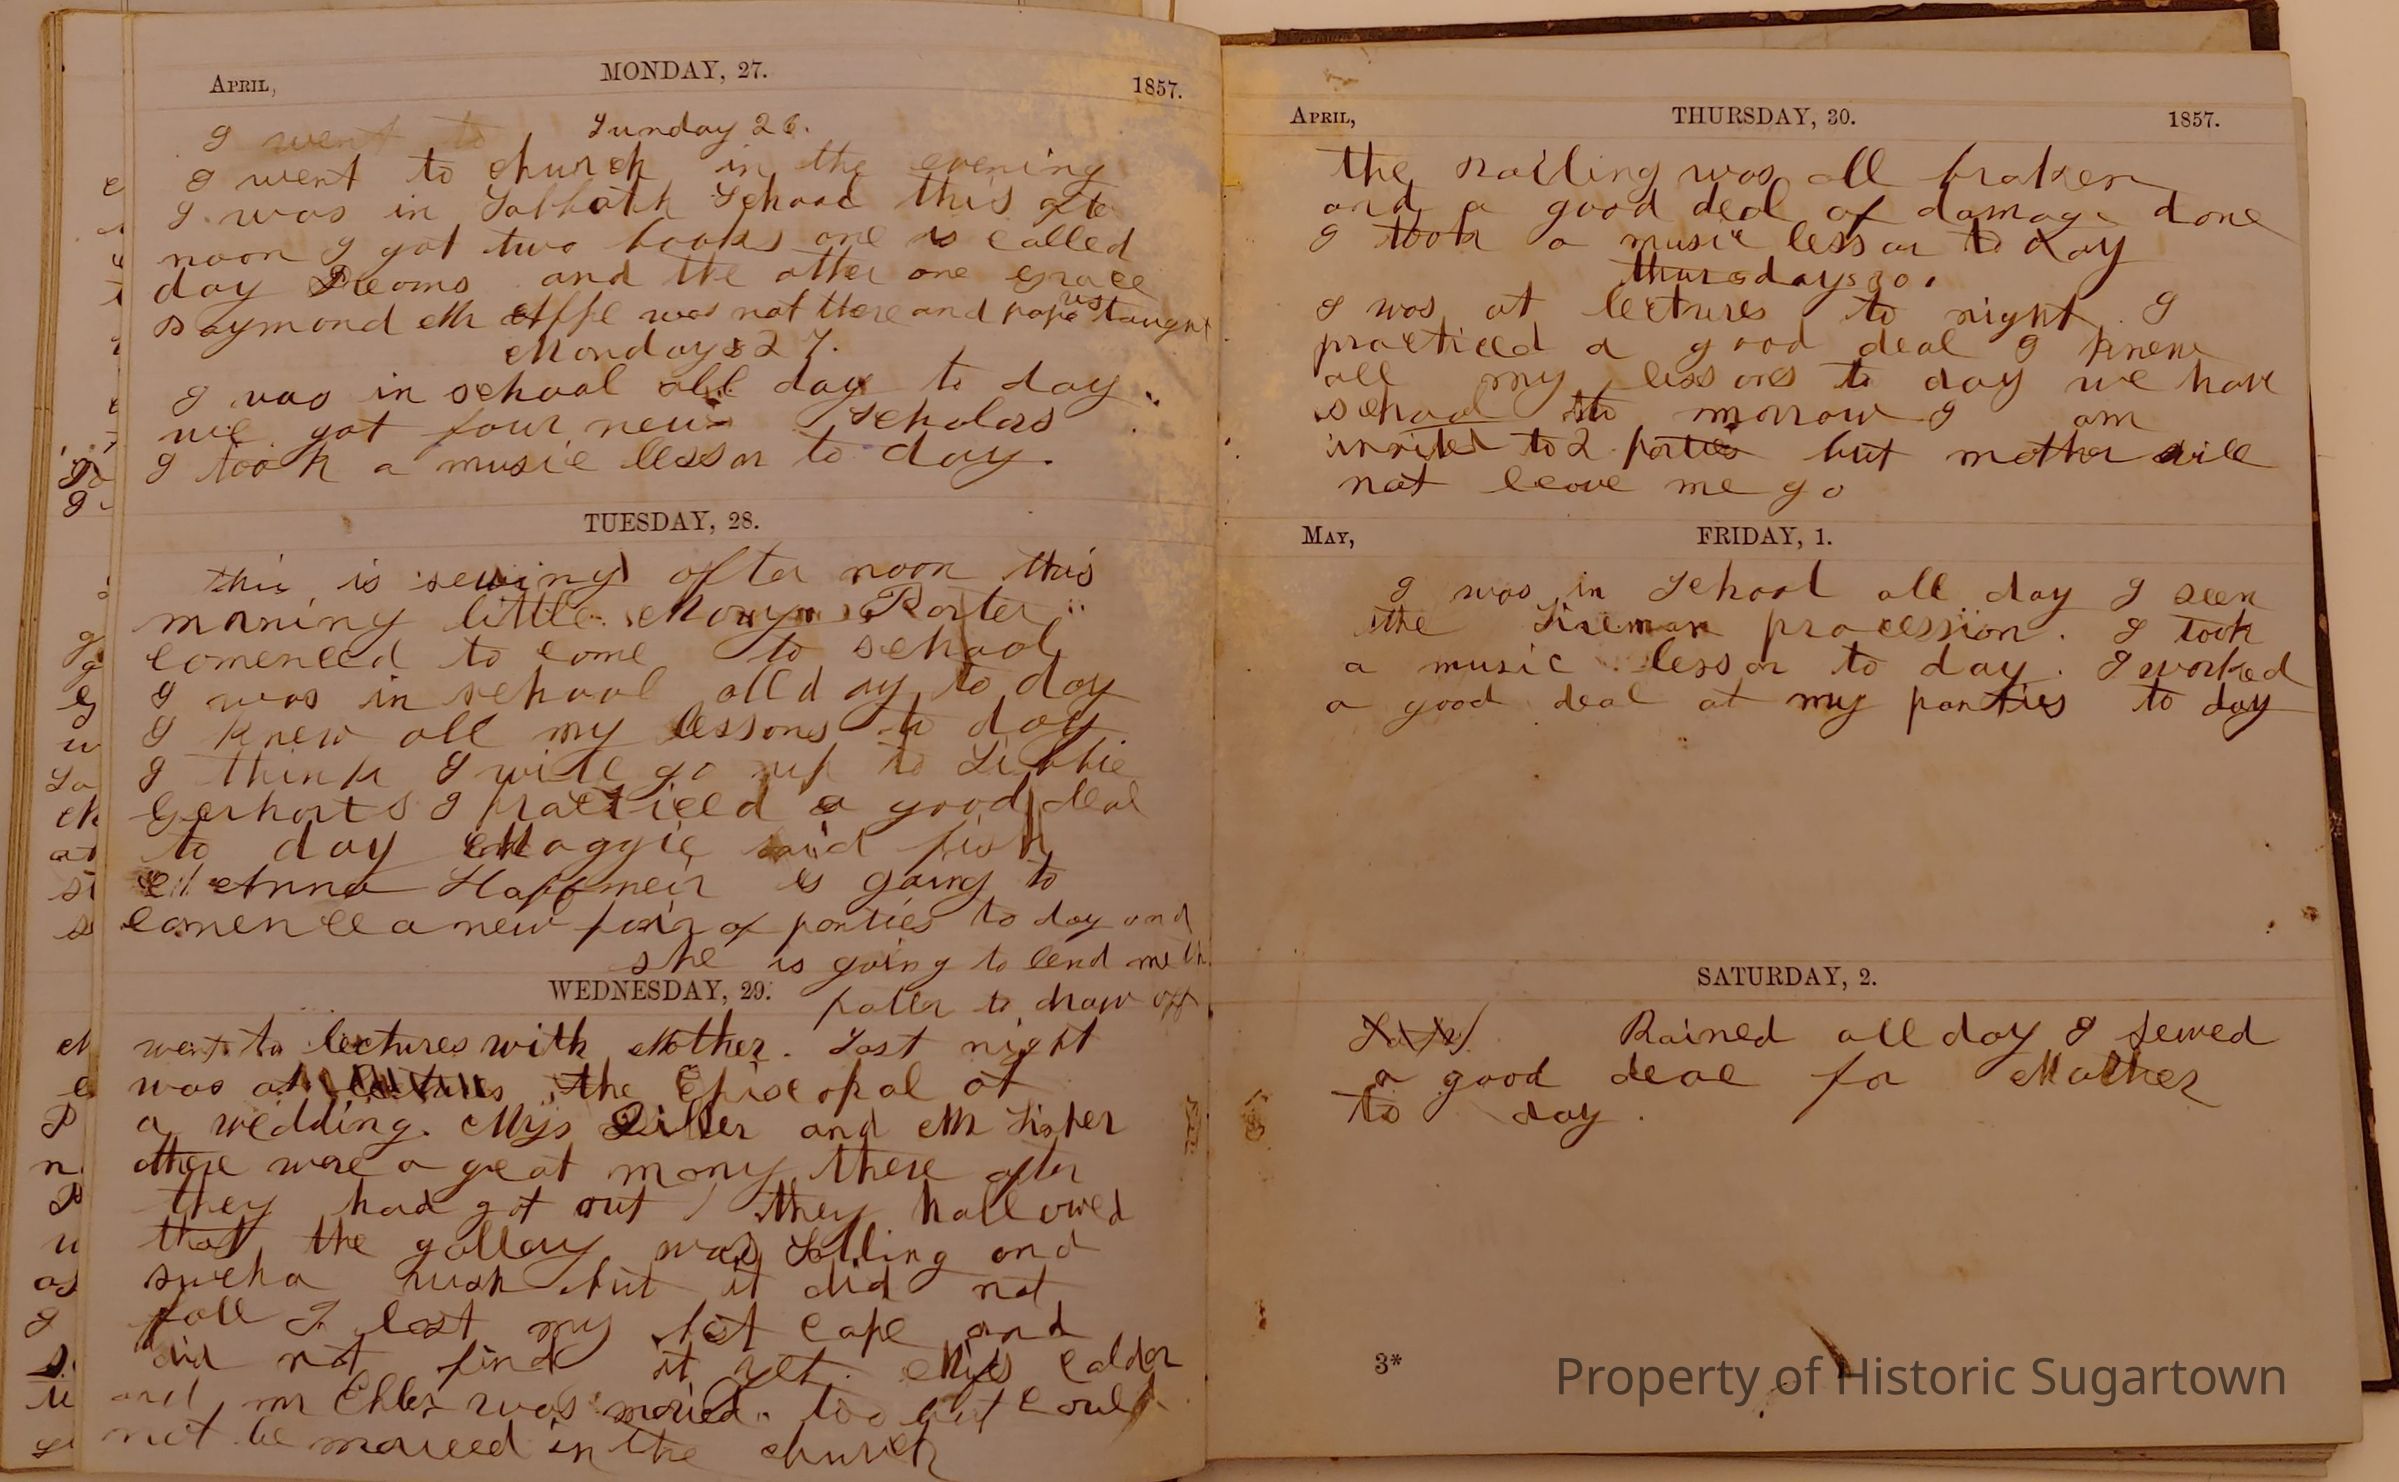 April,
MONDAY, 27.
1857.
I went to
Sunday 26.
I went to church in the evening
I was in Sabbath School this afte
noon I got two books one is called
day Dreams and the other one grace
raymond Mr was not there and papa taught us
Mondays 27.
I was in school all day to day
we got four new scholars
I took a music lesson to day.
TUESDAY, 28.
this is sewing after noon this
morning little Mary Porter
comenced to come to school
I was in school all day to day
I knew all my lessons to day
I think I will go up to Libbie
Gerharts I practiced a good deal
to day Maggie
Anna is going to
comence a new pair of panties to day and
she is going to lend me th
WEDNESDAY, 29.
patter to draw off
went to lectures with Mother. Last night
was at lectures the Episcopal at
a wedding. Miss Diller and Mr Lister
there were a great many there after
they had got out they hallowed
that the gallery was falling and
sucha rush but it did not
fall I lost my cape and
did not find it yet. Miss Calder
and mr Ehler was maried too but could
not be maried in the church
April,
THURSDAY, 30.
1857.
the railing was all broken
and a good deal of damage done
I took a music lesson to day
thursdays 30.
I was at lectures to night I
practiced a good deal I knew
all my lessons to day we have
school to morrow I am
invited to 2 parties but mother will
not leave me go
May,
FRIDAY, 1.
I was in School all day I seen
the Fireman procession. I took
a music lesson to day. I worked
a good deal at my panties to day
SATURDAY, 2.
Rained all day I sewed
a good deal for Mother
to day.
3*
Property of Historic Sugartown